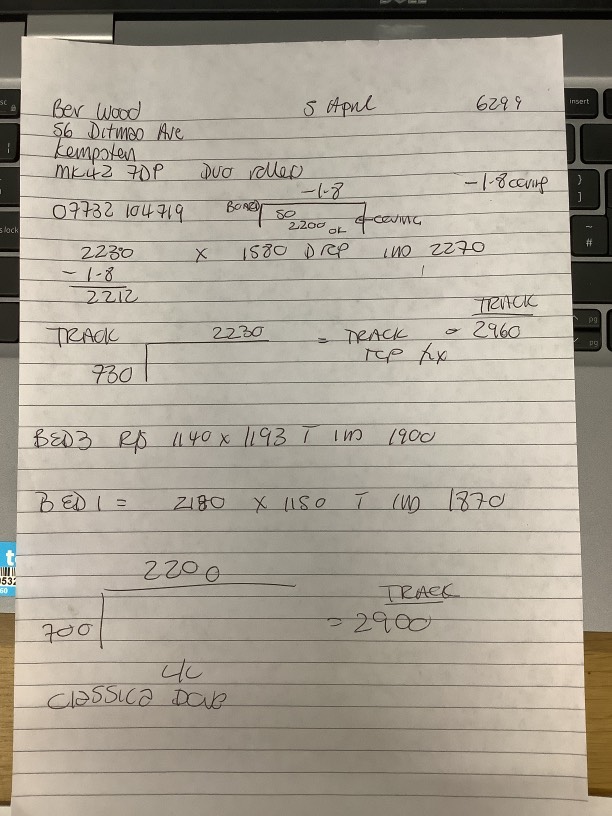 Bev Wood 5 April 6299
56 Ditmas Ave
Kempston
MK42 7DP Duo roller
-1.8 -1.8 coving
07732 104719 BOARD 50 coving
2200 OK
2230 x 1580 DRP IND 2270
- 1.8
2212
TRACK
TRACK 2230 = TRACK = 2960
730 TCP fix
BED 3 R/B 1140 x 1193 T IND 1900
BED 1 = 2180 x 1150 T IND 1870
2200
TRACK
700 = 2900
L/C
Classica Dove
insert